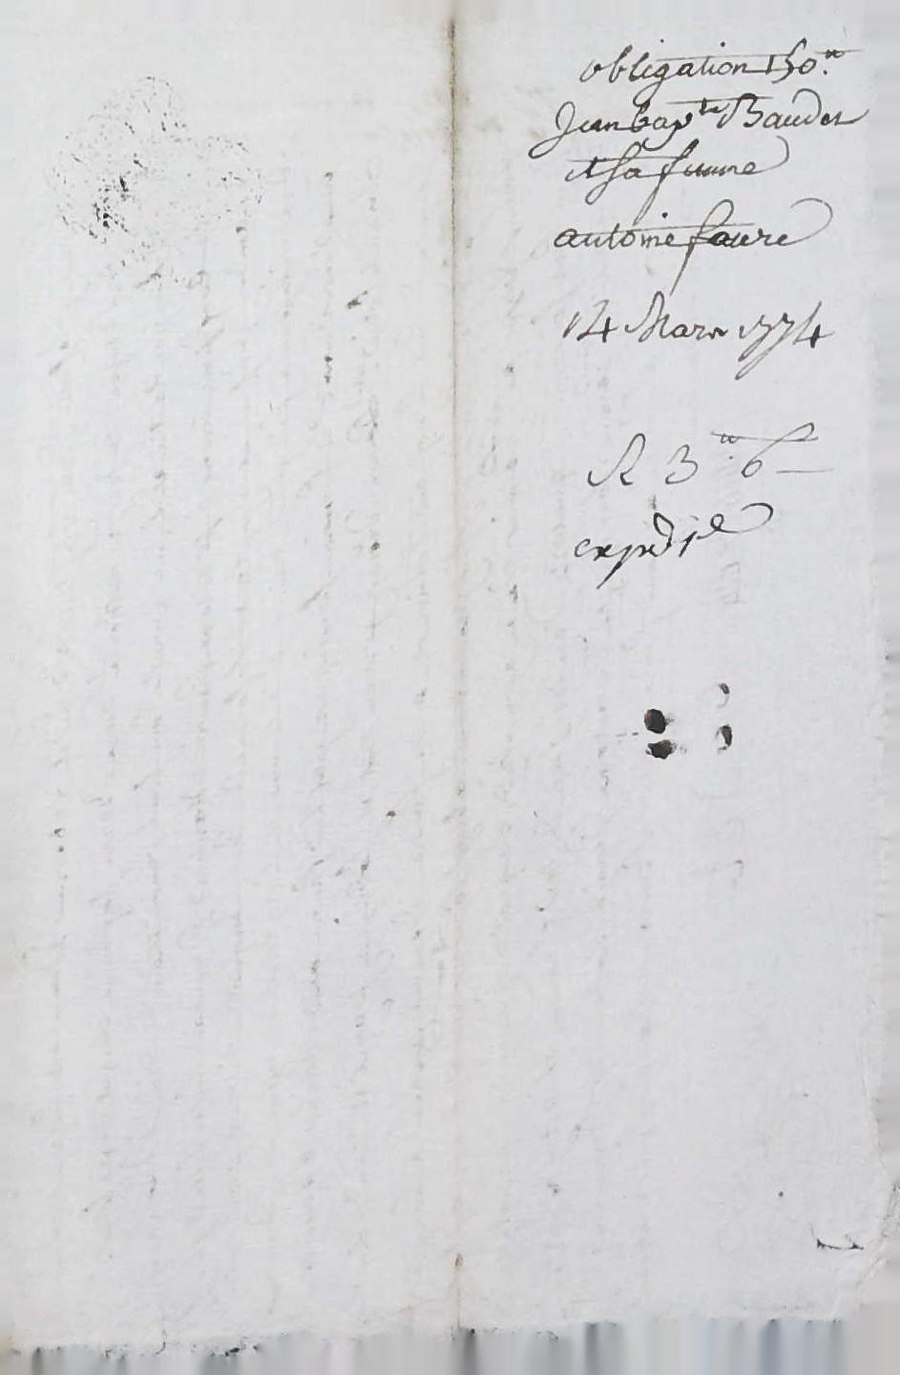 obligation 150.tt
Jean bapte Baudet
et sa femme
antoine faure
14 Mars 1774
R 3tt. 6s
expedié